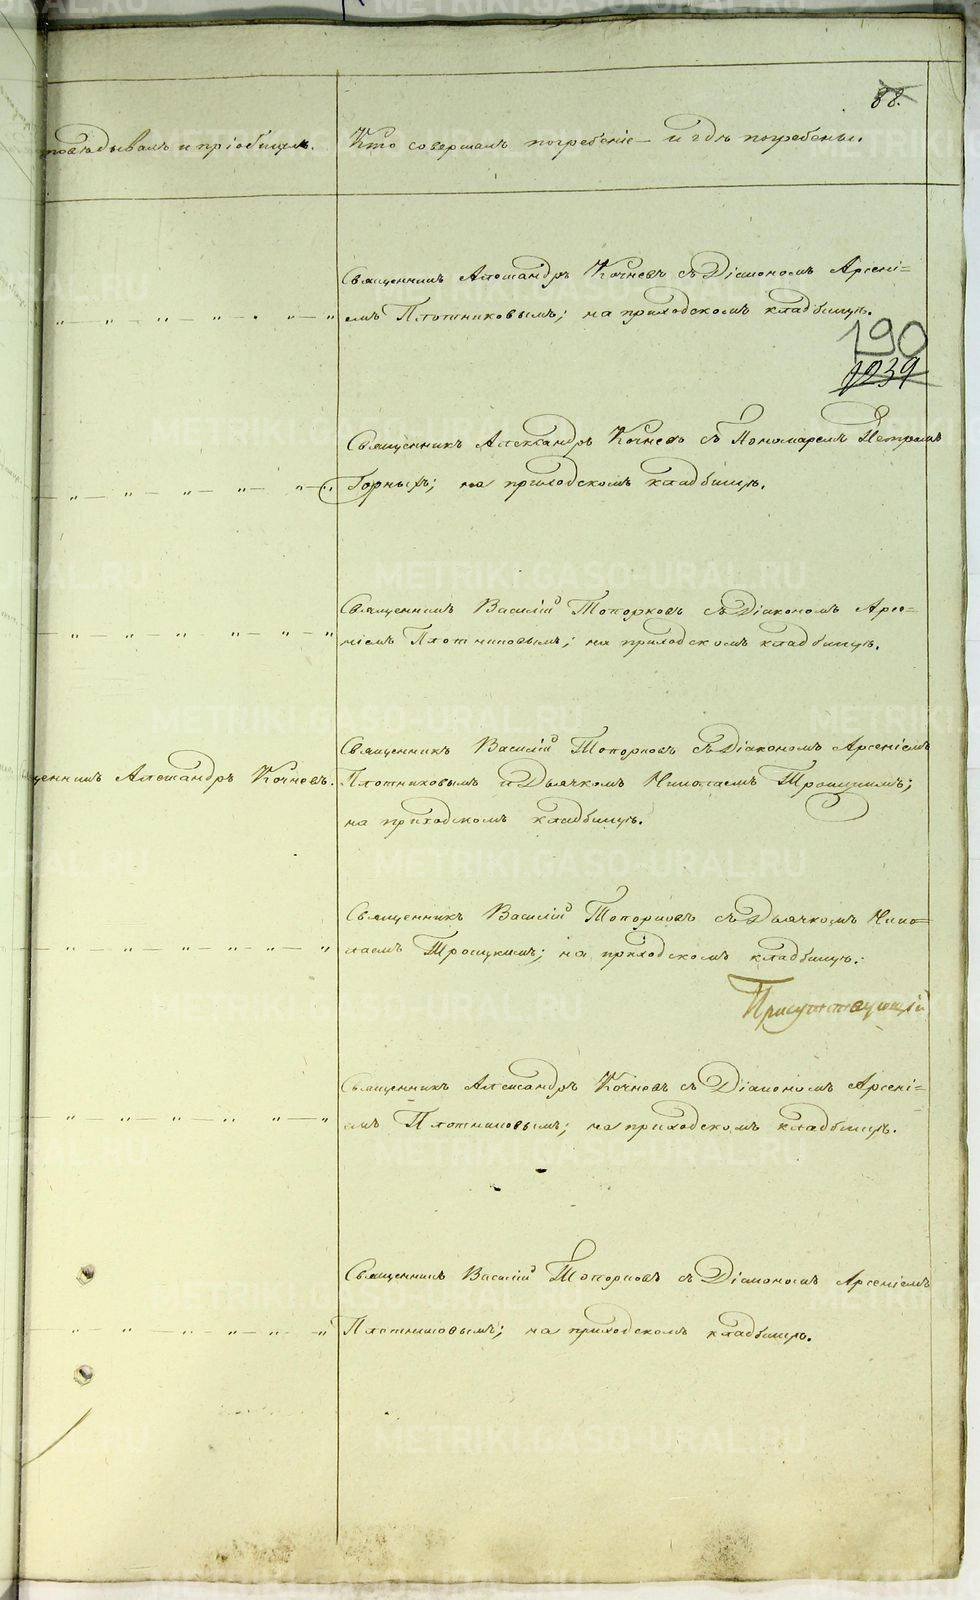 88.
повѣдывалъ и пріобщилъ. Кто совершалъ погребеніе и гдѣ погребены.
Священникъ Александръ Кочневъ съ Діакономъ Арсені-
емъ Плотниковымъ; на приходскомъ кладбищѣ.
190
1239
Священникъ Александръ Кочневъ съ Пономаремъ Петромъ
Горныхъ; на приходскомъ кладбищѣ.
Священникъ Василій Топорковъ съ Діакономъ Арсе-
ніемъ Плотниковымъ; на приходскомъ кладбищѣ.
Священникъ Василій Топорковъ съ Діакономъ Арсеніемъ
щенникъ Александръ Кочневъ. Плотниковымъ и Дьячкомъ Николаемъ Троицкимъ;
на приходскомъ кладбищѣ.
Священникъ Василій Топорковъ съ Дьячкомъ Нико-
лаемъ Троицкимъ; на приходскомъ кладбищѣ.
Присутствующій
Священникъ Александръ Кочневъ съ Діакономъ Арсені-
емъ Плотниковымъ; на приходскомъ кладбищѣ.
Священникъ Василій Топорковъ съ Діакономъ Арсеніемъ
Плотниковымъ; на приходскомъ кладбищѣ.